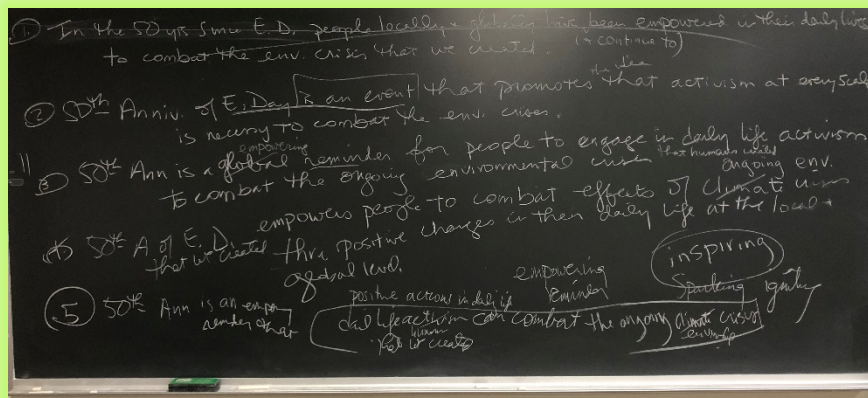 ① In the 50 yrs since E.D. people locally & globally have been empowered in their daily lives
(& continue to)
to combat the env. crisis that we created.
② 50th Anniv. of E. Day is an event that promotes the idea that activism at every scale
is necessary to combat the env. crises.
empowering
③ 50th Ann is a global reminder for people to engage in daily life activism
to combat the ongoing environmental crisis that humans created
ongoing env.
50th A. of E. D. empowers people to combat effects of climate crisis
that we created thru positive changes in their daily life at the local +
global level.
inspiring
empowering
reminder
Sparking igniting
positive actions in daily life
⑤ 50th Ann is an empow
reminder that
daily life activism can combat the ongoing climate crisis
human